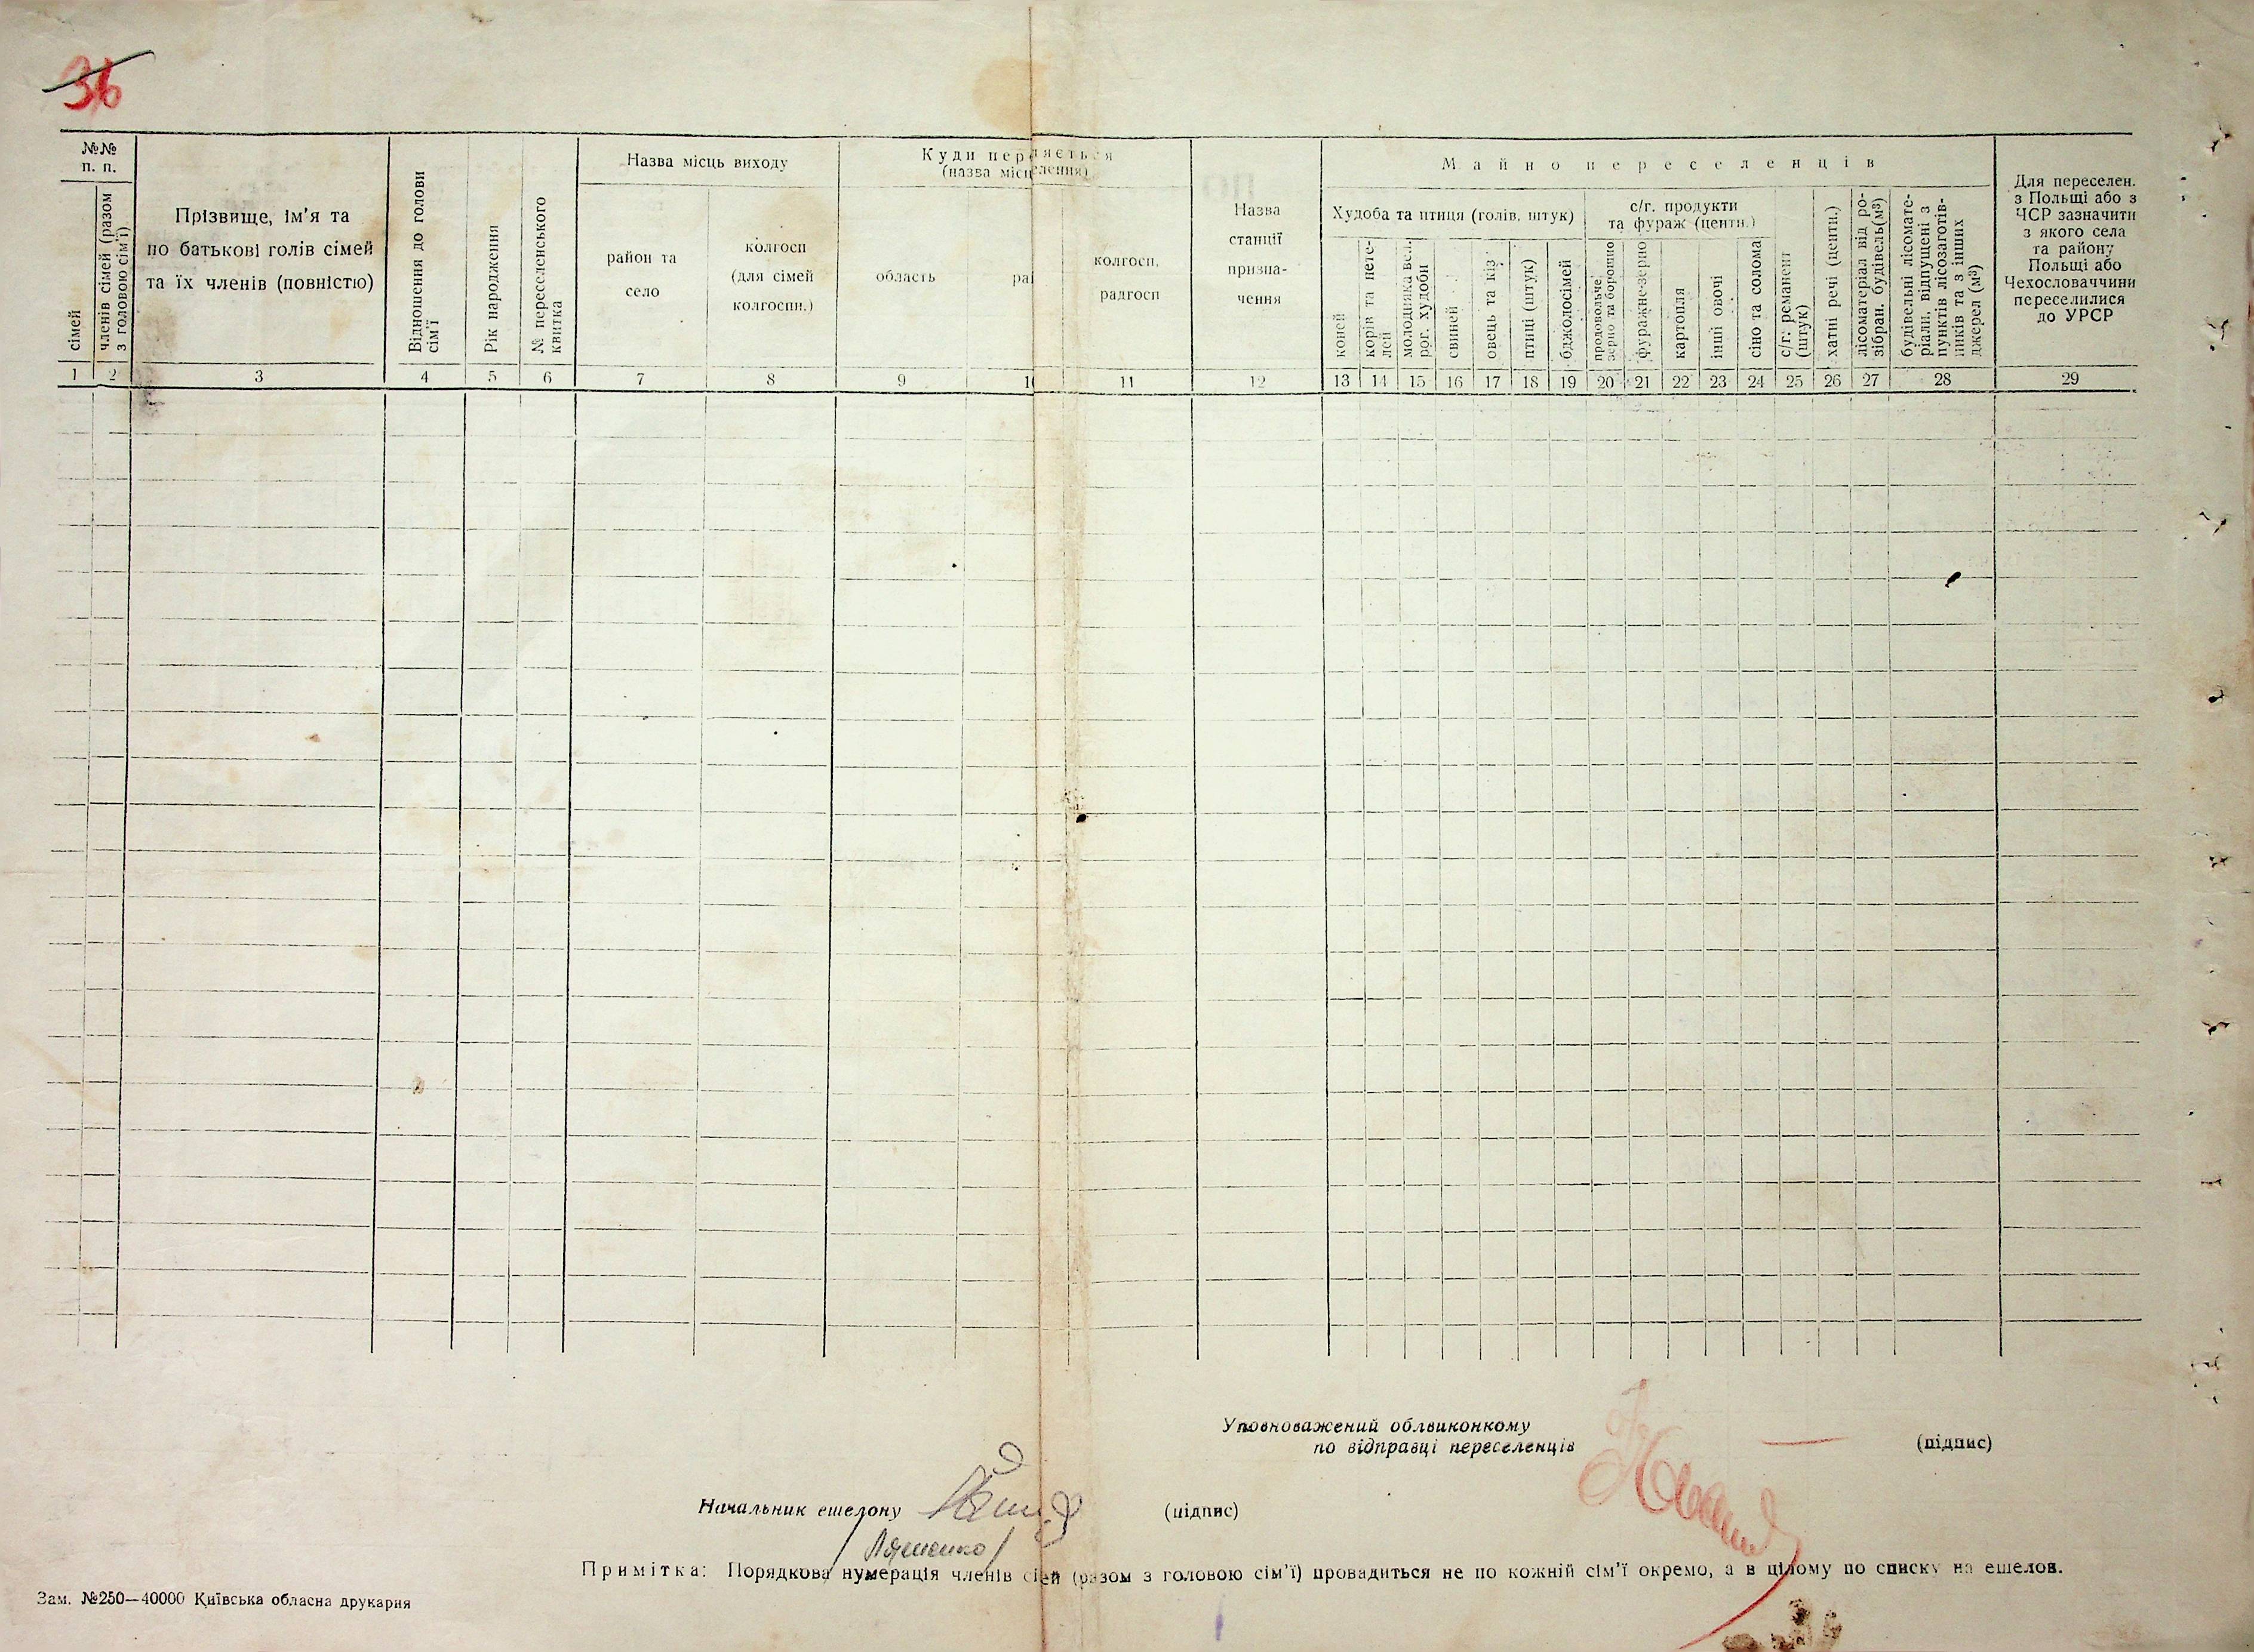 36
№№
п. п.
сімей
членів сімей (разом
з головою сім'ї)
Прізвище, ім'я та
по батькові голів сімей
та їх членів (повністю)
Відношення до голови
сім'ї
Рік народження
№ переселенського
квитка
Назва місць виходу
район та
село
колгосп
(для сімей
колгоспн.)
Куди пер ляється
(назва місц елення)
область
ра
колгосп,
радгосп
Назва
станції
призна-
чення
Майно переселенців
Худоба та птиця (голів, штук)
коней
корів та нете-
лей
молодняка вел.
рог. худоби
свиней
овець та кіз
птиці (штук)
бджолосімей
с/г. продукти
та фураж (центн.)
продовольче
зерно та борошно
фуражне-зерно
картопля
інші овочі
сіно та солома
с/г. реманент
(штук)
хатні речі (центн.)
лісоматеріал від ро-
зібран. будівель (м³)
будівельні лісомате-
ріали, відпущені з
пунктів лісозаготів-
лників та з інших
джерел (м³)
Для переселен.
з Польщі або з
ЧСР зазначити
з якого села
та району
Польщі або
Чехословаччини
переселилися
до УРСР
1 2 3 4 5 6 7 8 9 1 11 12 13 14 15 16 17 18 19 20 21 22 23 24 25 26 27 28 29
Уповноважений облвиконкому
по відправці переселенців
(підпис)
Начальник ешелону
(підпис)
/Ляшенко/
Примітка: Порядкова нумерація членів сімей (разом з головою сім'ї) провадиться не по кожній сім'ї окремо, а в цілому по списку на ешелон.
Зам. №250—40000 Київська обласна друкарня